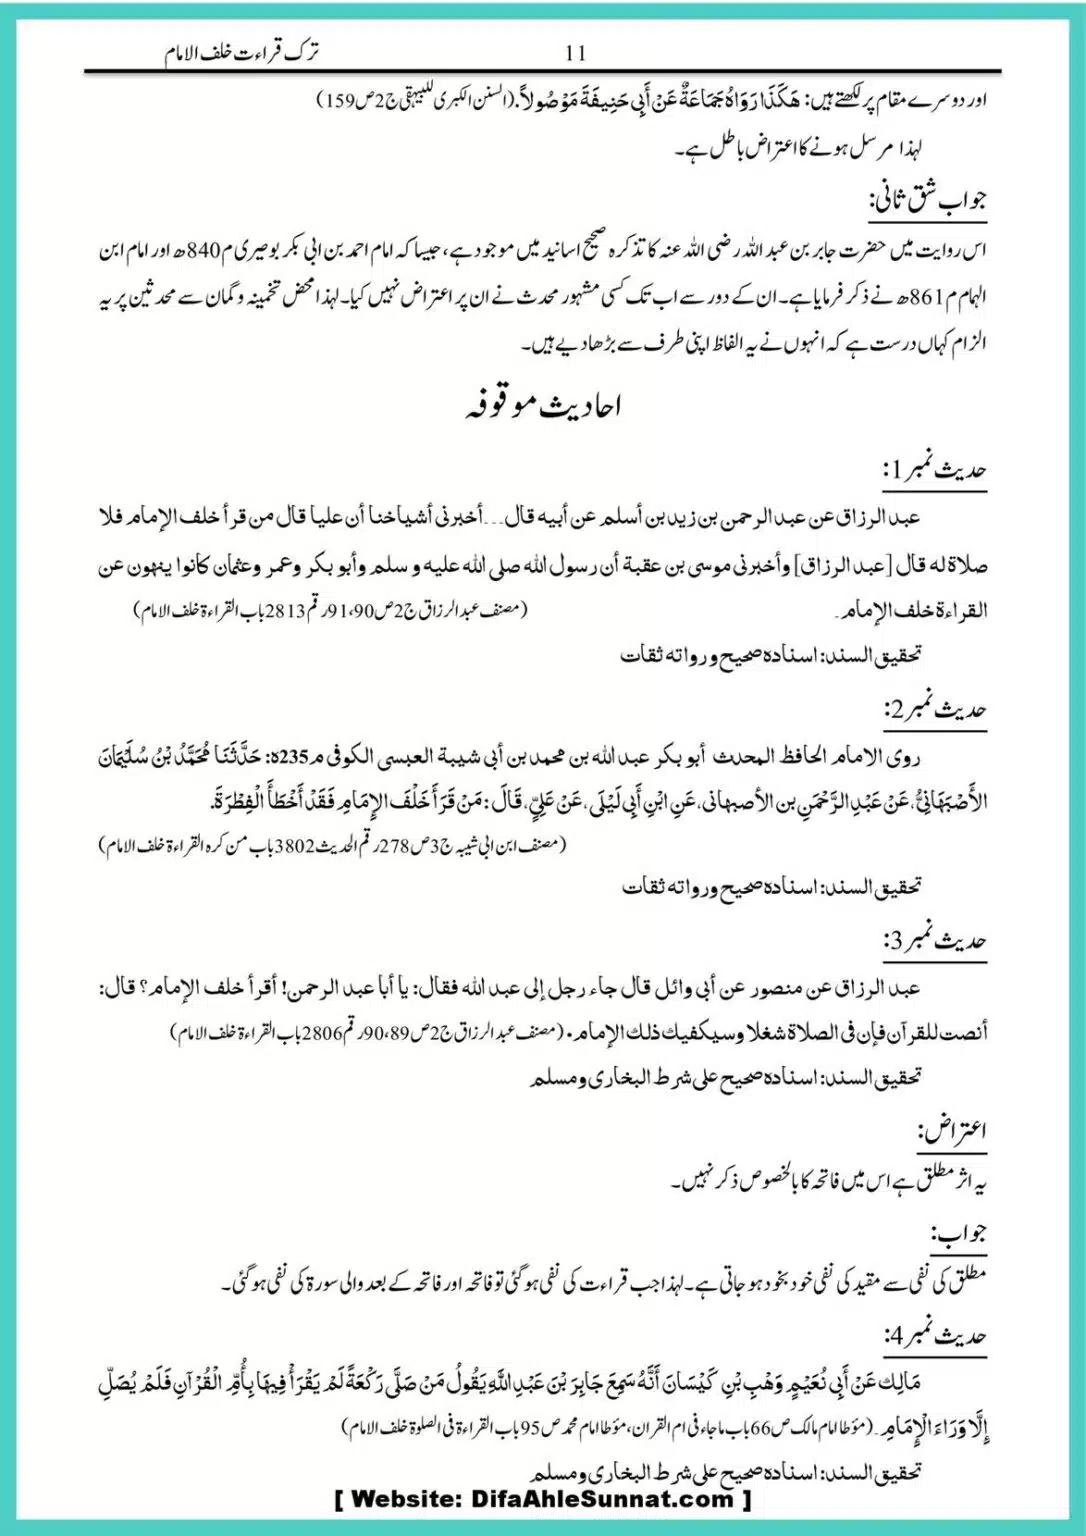 ترک قراءت خلف الامام 11
اور دوسرے مقام پر لکھتے ہیں: هَكَذَا رَوَاهُ جَمَاعَةٌ عَنْ أَبِي حَنِيفَةَ مَوْصُولاً. (السنن الکبری للبیہقی ج2ص159)
لہذا مرسل ہونے کا اعتراض باطل ہے۔
جواب شق ثانی:
اس روایت میں حضرت جابر بن عبد اللہ رضی اللہ عنہ کا تذکرہ صحیح اسانید میں موجود ہے، جیسا کہ امام احمد بن ابی بکر بوصیری م840ھ اور امام ابن
الہمام م861ھ نے ذکر فرمایا ہے۔ ان کے دور سے اب تک کسی مشہور محدث نے ان پر اعتراض نہیں کیا۔ لہذا محض تخمینہ و گمان سے محدثین پر یہ
الزام کہاں درست ہے کہ انہوں نے یہ الفاظ اپنی طرف سے بڑھا دیے ہیں۔
احادیث موقوفہ
حدیث نمبر 1:
عبد الرزاق عن عبد الرحمن بن زيد بن أسلم عن أبيه قال...أخبرني أشياخنا أن عليا قال من قرأ خلف الإمام فلا
صلاة له قال [عبد الرزاق] وأخبرني موسى بن عقبة أن رسول الله صلى الله عليه و سلم وأبو بكر وعمر وعثمان كانوا ينهون عن
القراءة خلف الإمام. (مصنف عبد الرزاق ج2ص90،91رقم2813باب القراءة خلف الامام)
تحقيق السند: اسناده صحيح ورواته ثقات
حدیث نمبر 2:
روى الامام الحافظ المحدث أبو بكر عبد الله بن محمد بن أبي شيبة العبسي الكوفي م235ه: حَدَّثَنَا مُحَمَّدُ بْنُ سُلَيْمَانَ
الأَصْبَهَانِيُّ، عَنْ عَبْدِ الرَّحْمَنِ بن الأصبهانى، عَنِ ابْنِ أَبِي لَيْلَى، عَنْ عَلِيٍّ، قَالَ: مَنْ قَرَأَ خَلْفَ الإِمَامِ فَقَدْ أَخْطَأَ الْفِطْرَةَ.
(مصنف ابن ابی شیبہ ج3ص278رقم الحدیث3802باب من کرہ القراءة خلف الامام)
تحقيق السند: اسناده صحيح ورواته ثقات
حدیث نمبر 3:
عبد الرزاق عن منصور عن أبي وائل قال جاء رجل إلى عبد الله فقال: يا أبا عبد الرحمن! أقرأ خلف الإمام؟ قال:
أنصت للقرآن فإن في الصلاة شغلا وسيكفيك ذلك الإمام. (مصنف عبد الرزاق ج2ص89،90رقم2806باب القراءة خلف الامام)
تحقيق السند: اسناده صحيح على شرط البخاري ومسلم
اعتراض:
یہ اثر مطلق ہے اس میں فاتحہ کا بالخصوص ذکر نہیں۔
جواب:
مطلق کی نفی سے مقید کی نفی خود بخود ہو جاتی ہے۔ لہذا جب قراءت کی نفی ہوگئی تو فاتحہ اور فاتحہ کے بعد والی سورۃ کی نفی ہوگئی۔
حدیث نمبر 4:
مَالِك عَنْ أَبِي نُعَيْمٍ وَهْبِ بْنِ كَيْسَانَ أَنَّهُ سَمِعَ جَابِرَ بْنَ عَبْدِ اللَّهِ يَقُولُ مَنْ صَلَّى رَكْعَةً لَمْ يَقْرَأْ فِيهَا بِأُمِّ الْقُرْآنِ فَلَمْ يُصَلِّ
إِلَّا وَرَاءَ الْإِمَامِ. (مؤطا امام مالک ص66باب ماجاء فی ام القران، مؤطا امام محمد ص95باب القراءة فی الصلوة خلف الامام)
تحقيق السند: اسناده صحيح على شرط البخاري ومسلم
[ Website: DifaAhleSunnat.com ]